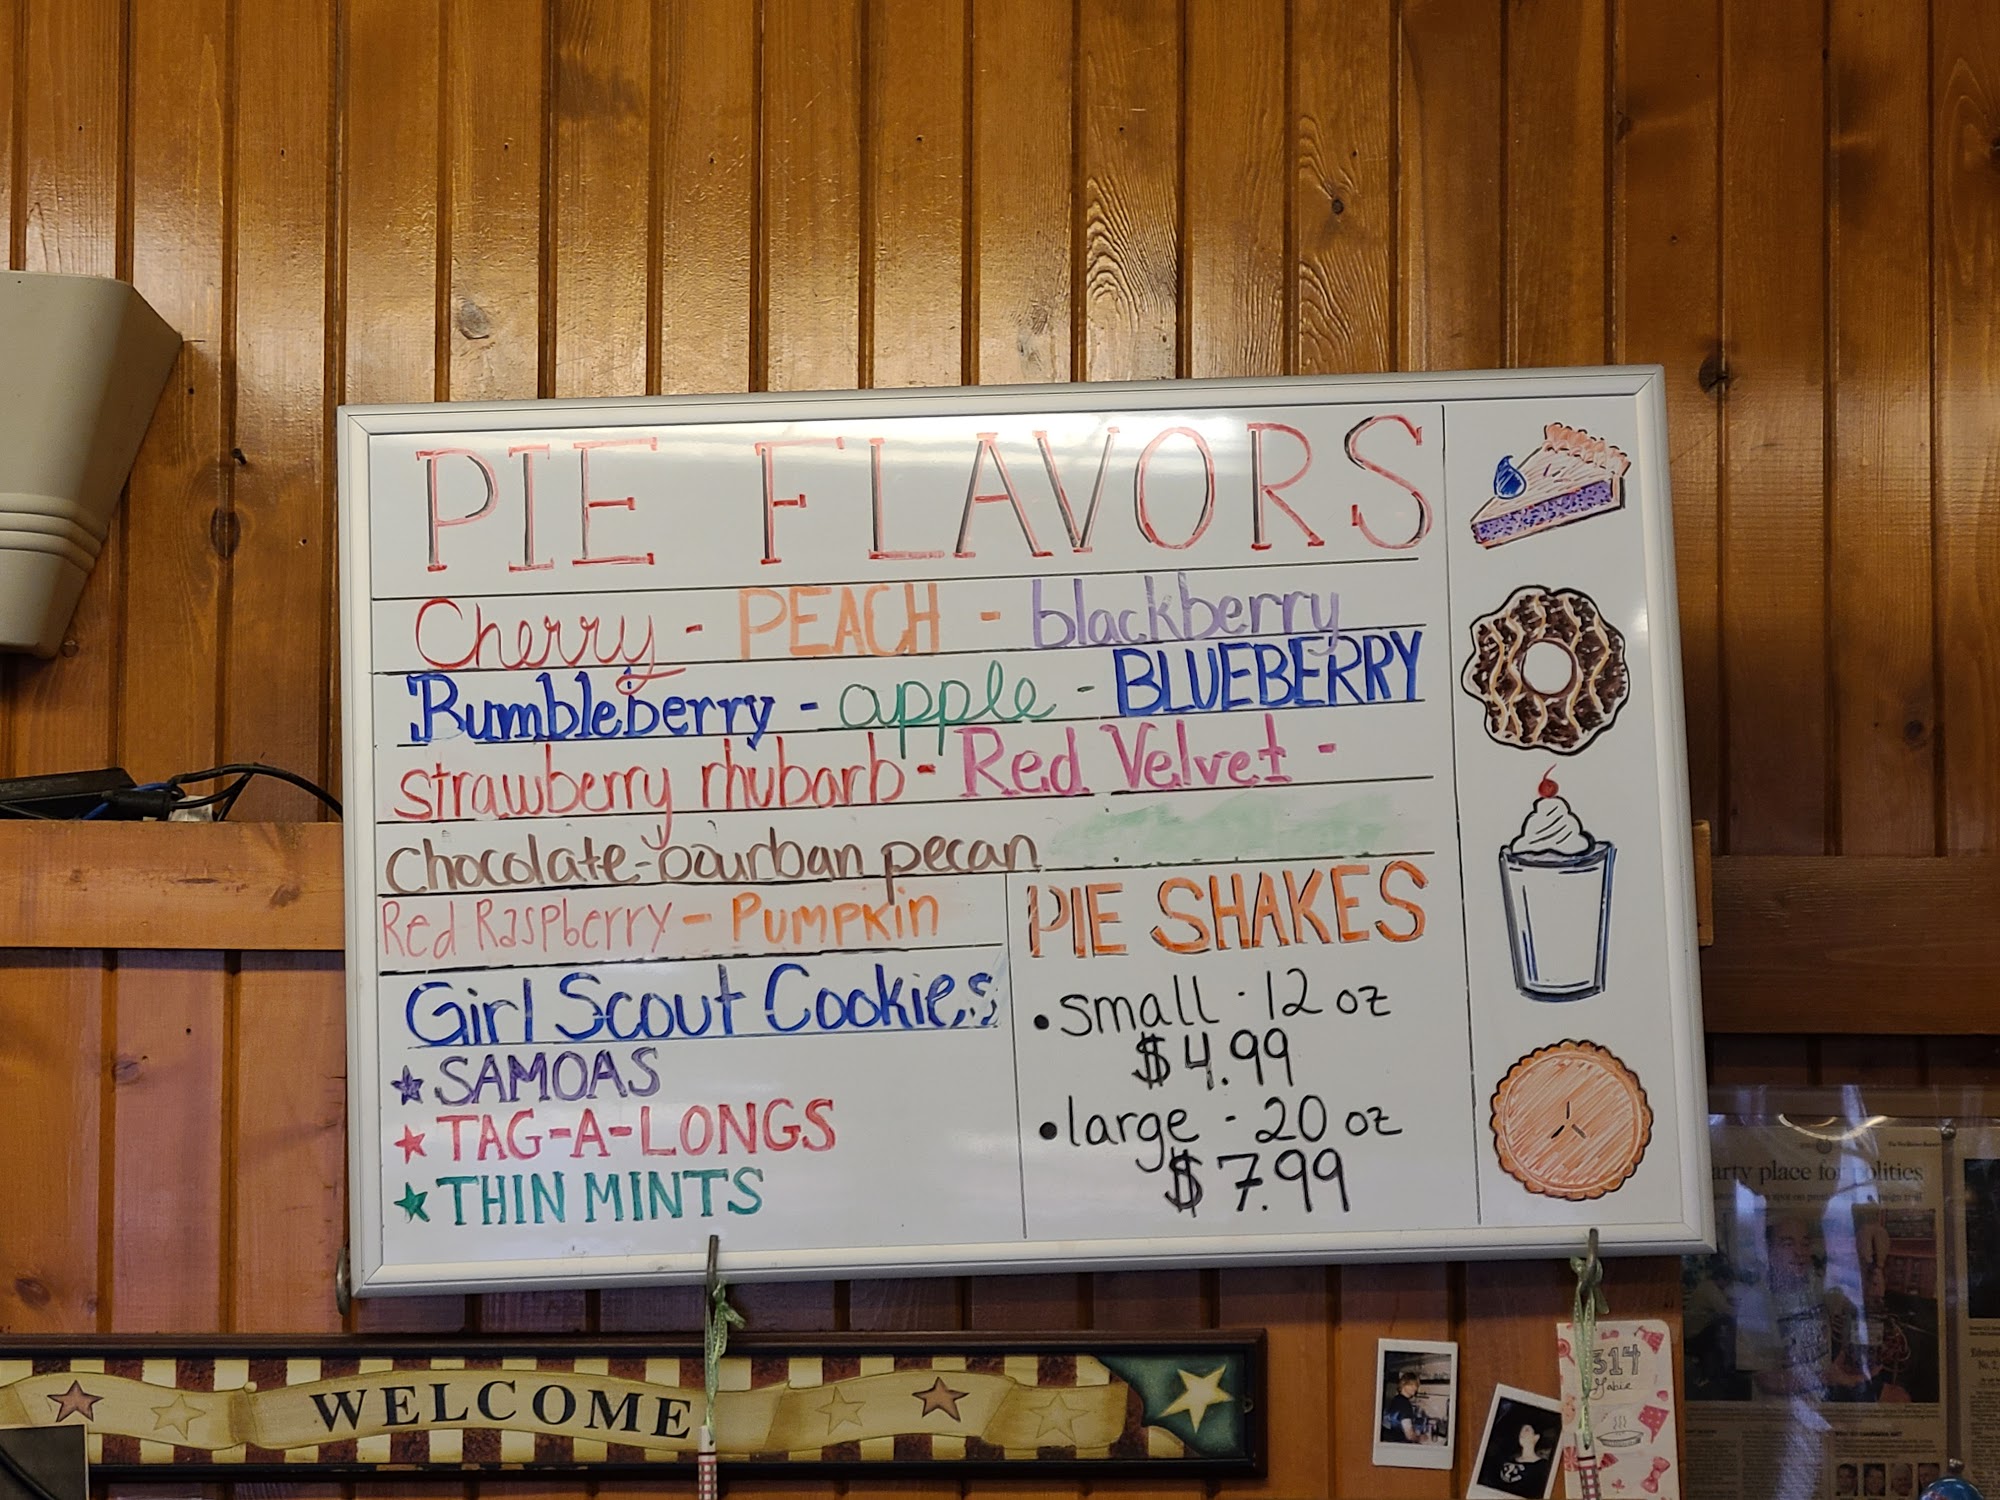 PIE FLAVORS
Cherry - PEACH - blackberry
Bumbleberry - apple - BLUEBERRY
strawberry rhubarb - Red Velvet -
chocolate-bourban pecan
Red Raspberry - PUMPKIN
Girl Scout Cookies
★ SAMOAS
★ TAG-A-LONGS
★ THIN MINTS
PIE SHAKES
• small - 12 oz
$4.99
• large - 20 oz
$7.99
WELCOME
314
arty place for politics